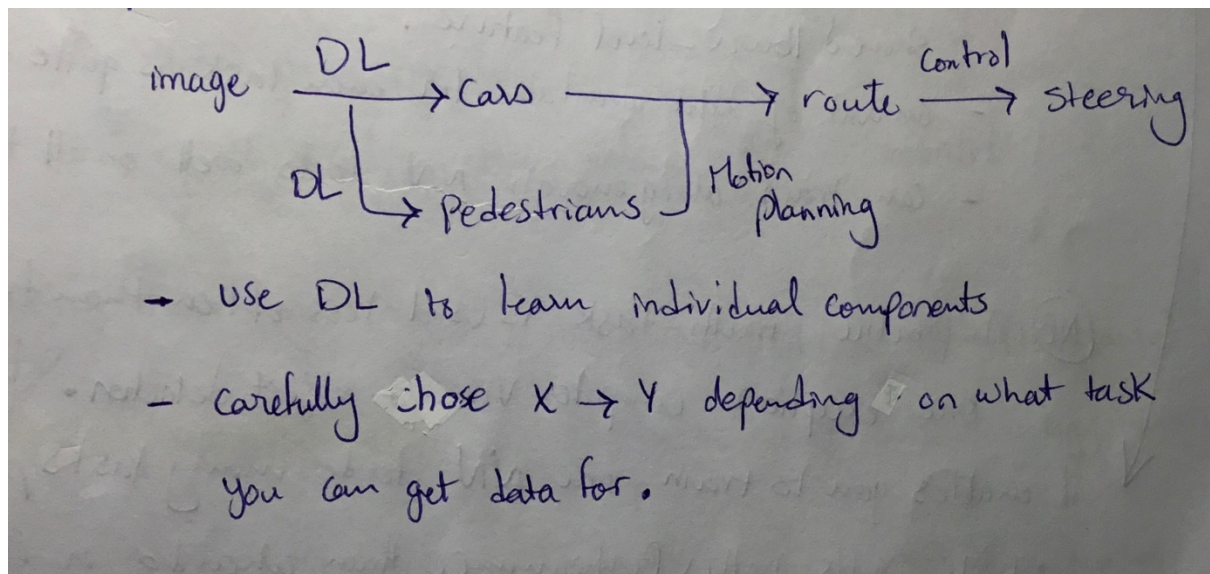 DL
image → Cars → route → steering
Control
DL
→ Pedestrians
Motion
planning
→ Use DL to learn individual components
- Carefully chose X → Y depending on what task
you can get data for.